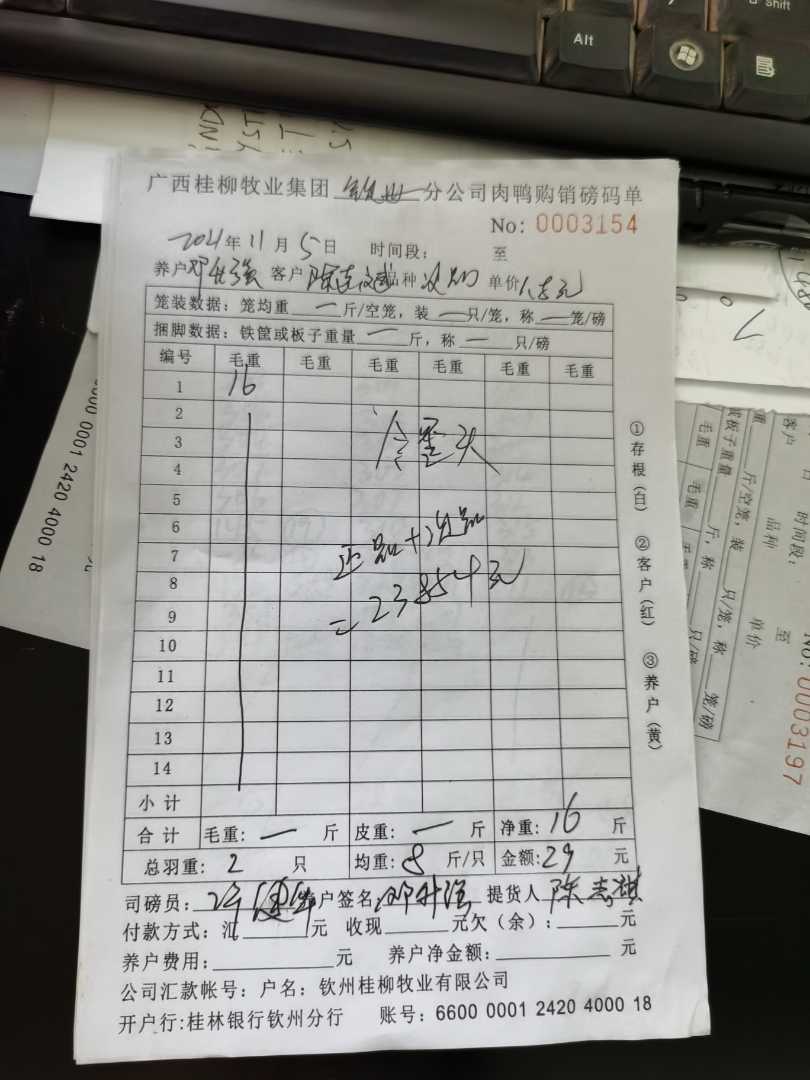 Alt
Shift
广西桂柳牧业集团 分公司肉鸭购销磅码单
No: 0003154
2021年11月5日 时间段: 至
养户 邓 强 客户 陈志 品种 次 单价 元
笼装数据: 笼均重 一 斤/空笼, 装 一 只/笼, 称 一 笼/磅
捆脚数据: 铁筐或板子重量 一 斤, 称 一 只/磅
编号 毛重 毛重 毛重 毛重 毛重 毛重
1 16
2
3
4
5
6
7
8
9
10
11
12
13
14
小计
合计 毛重: 一 斤 皮重: 一 斤 净重: 16 斤
总羽重: 2 只 均重: 8 斤/只 金额: 29 元
正品+次品
=23854元
①存根(白) ②客户(红) ③养户(黄)
司磅员: 许 户签名 邓 强 提货人 陈志祺
付款方式: 汇 元 收现 元欠(余): 元
养户费用: 元 养户净金额: 元
公司汇款帐号: 户名: 钦州桂柳牧业有限公司
开户行:桂林银行钦州分行 账号: 6600 0001 2420 4000 18
0000 0001 2420 4000 18
客户
时间段: 至
品种 单价
斤/空笼, 装 只/笼, 称 笼/磅
或板子重量 斤, 称 只/磅
毛重 毛重
No: 0003197